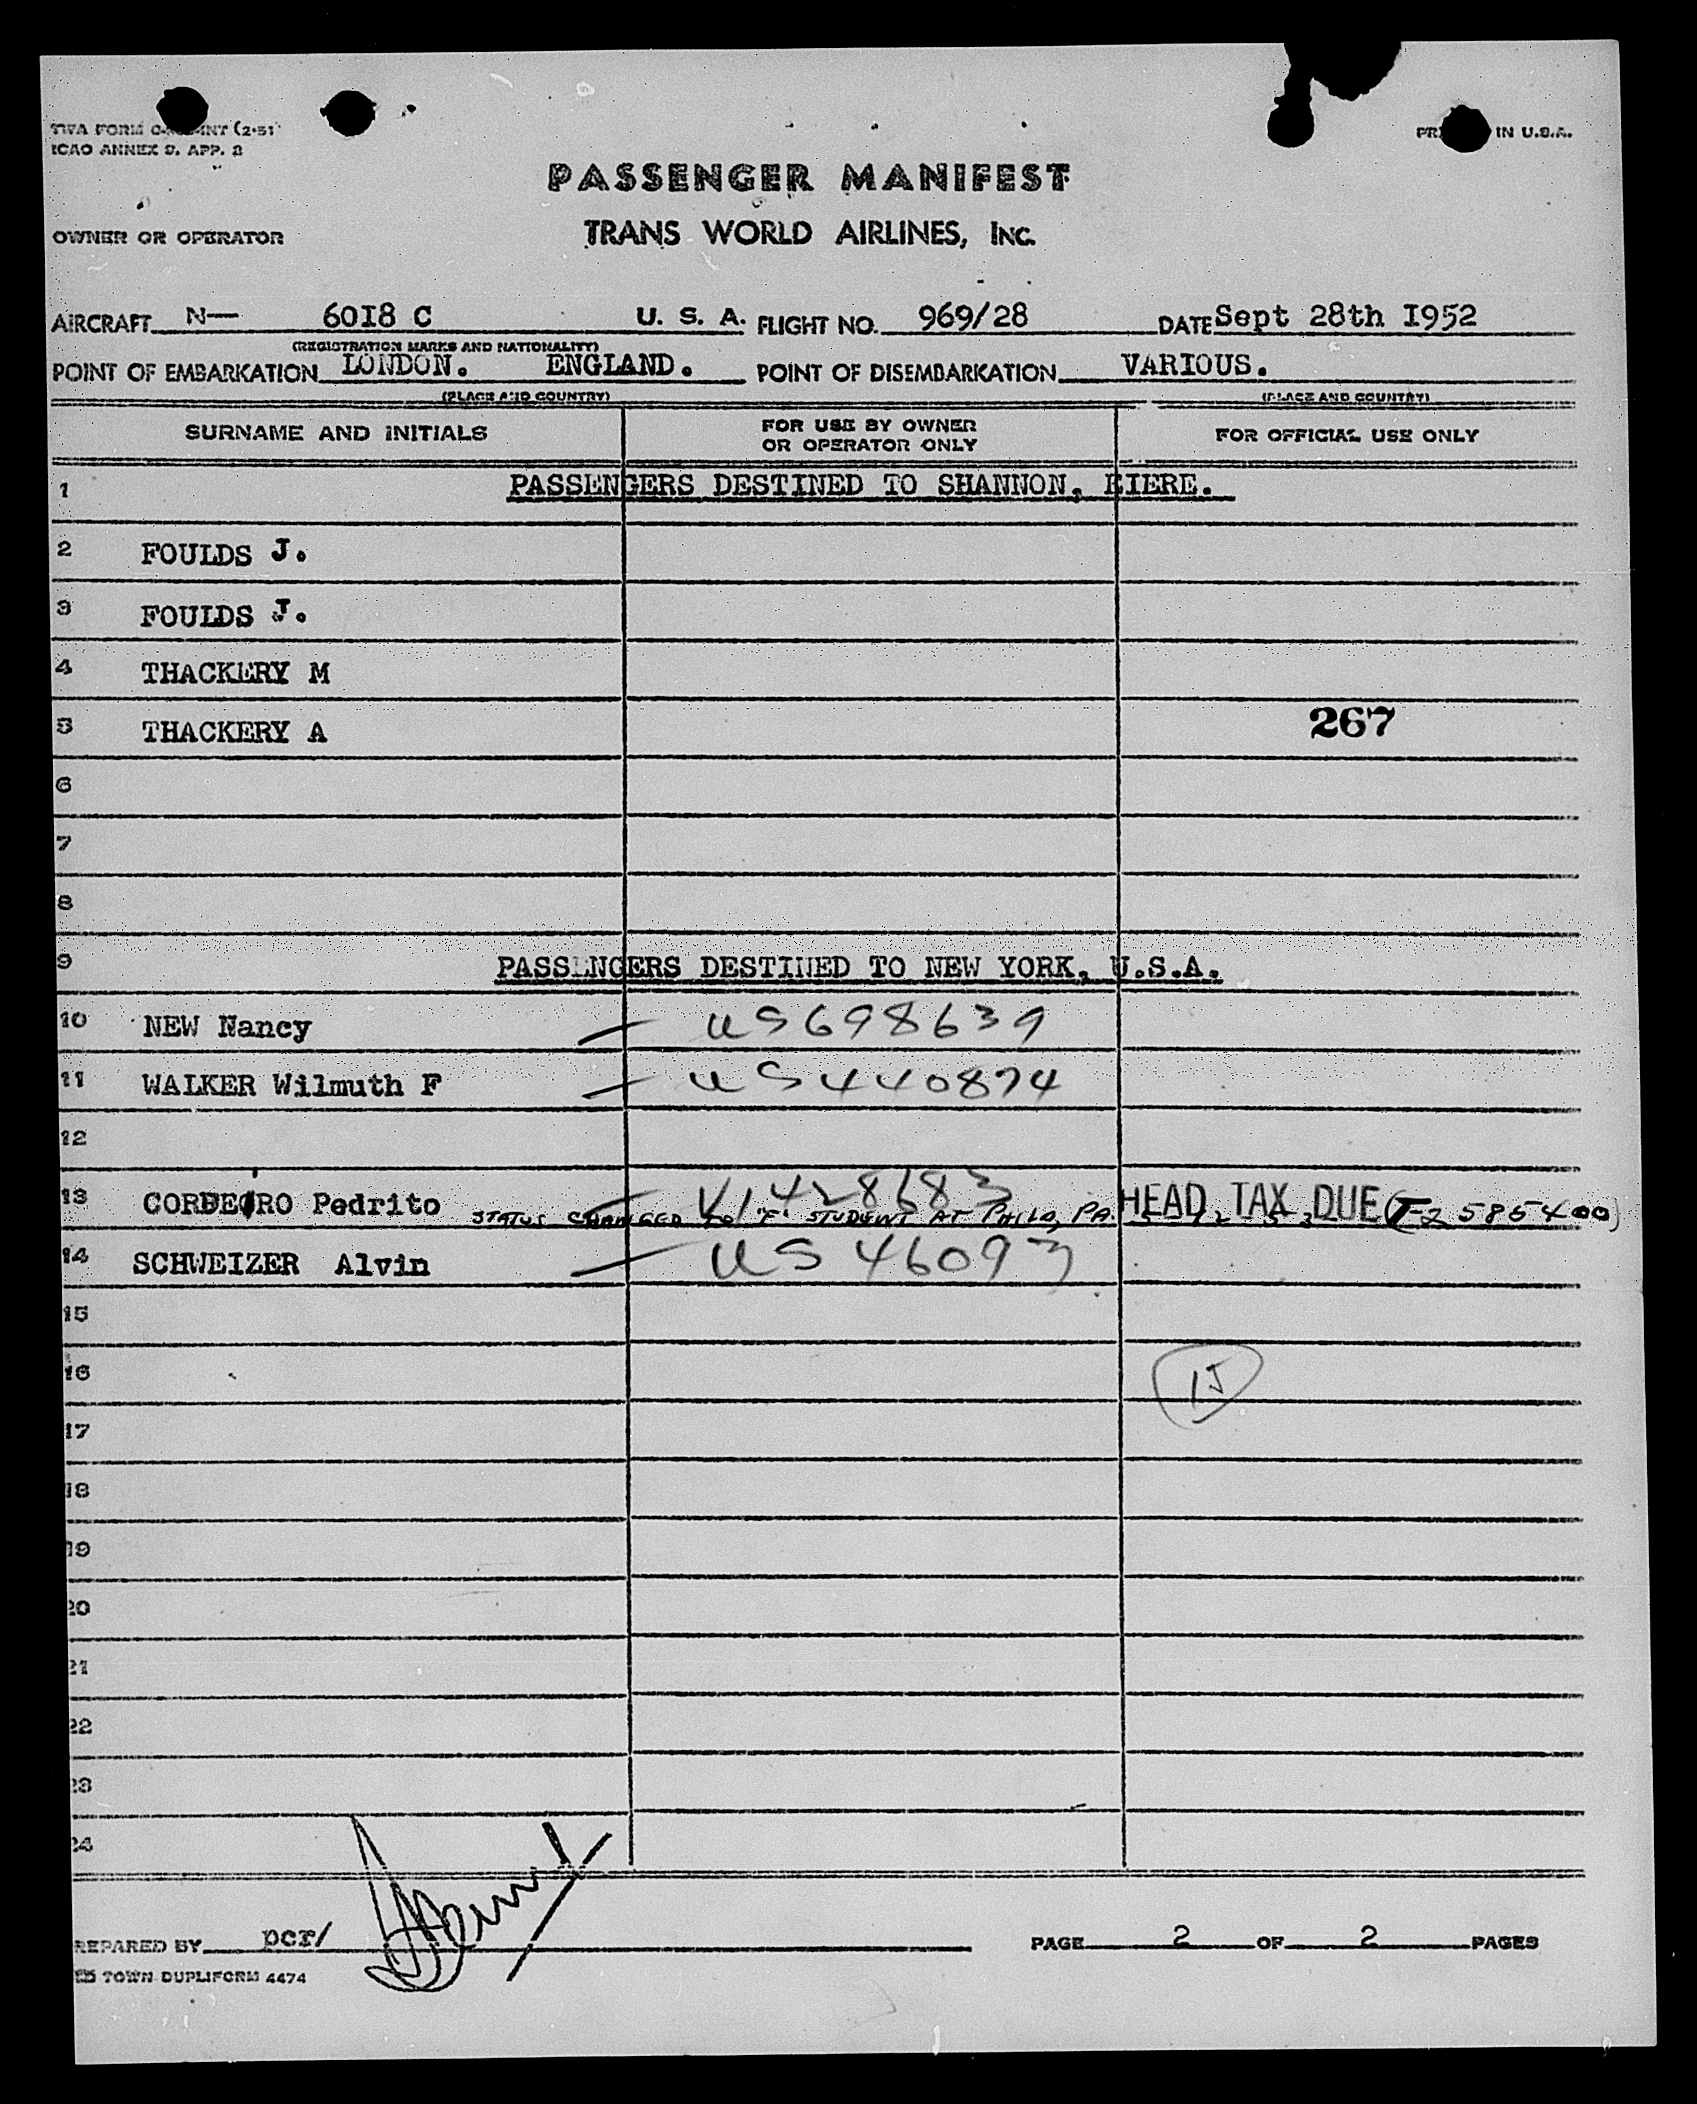 TWA FORM (2-51)
ICAO ANNEX 9. APP. 2
IN U.S.A.
PASSENGER MANIFEST
OWNER OR OPERATOR
TRANS WORLD AIRLINES, INC.
AIRCRAFT N— 60I8 C U. S. A. FLIGHT NO. 969/28 DATE Sept 28th I952
(REGISTRATION MARKS AND NATIONALITY)
POINT OF EMBARKATION LONDON. ENGLAND. POINT OF DISEMBARKATION VARIOUS.
(PLACE AND COUNTRY) (PLACE AND COUNTRY)
SURNAME AND INITIALS FOR USE BY OWNER OR OPERATOR ONLY FOR OFFICIAL USE ONLY
1 PASSENGERS DESTINED TO SHANNON, EIERE.
2 FOULDS J.
3 FOULDS J.
4 THACKERY M
5 THACKERY A 267
6
7
8
9 PASSENGERS DESTINED TO NEW YORK, U.S.A.
10 NEW Nancy — US698639
11 WALKER Wilmuth F — US440874
12
13 CORDEIRO Pedrito — V1428683 HEAD TAX DUE
STATUS CHANGED TO "F" STUDENT AT PHILA, PA. 5-12-53 (T-2585400)
14 SCHWEIZER Alvin — US46093
15
16 15
17
18
19
20
21
22
23
24
PREPARED BY pcr/ PAGE 2 OF 2 PAGES
TOWN DUPLIFORM 4474